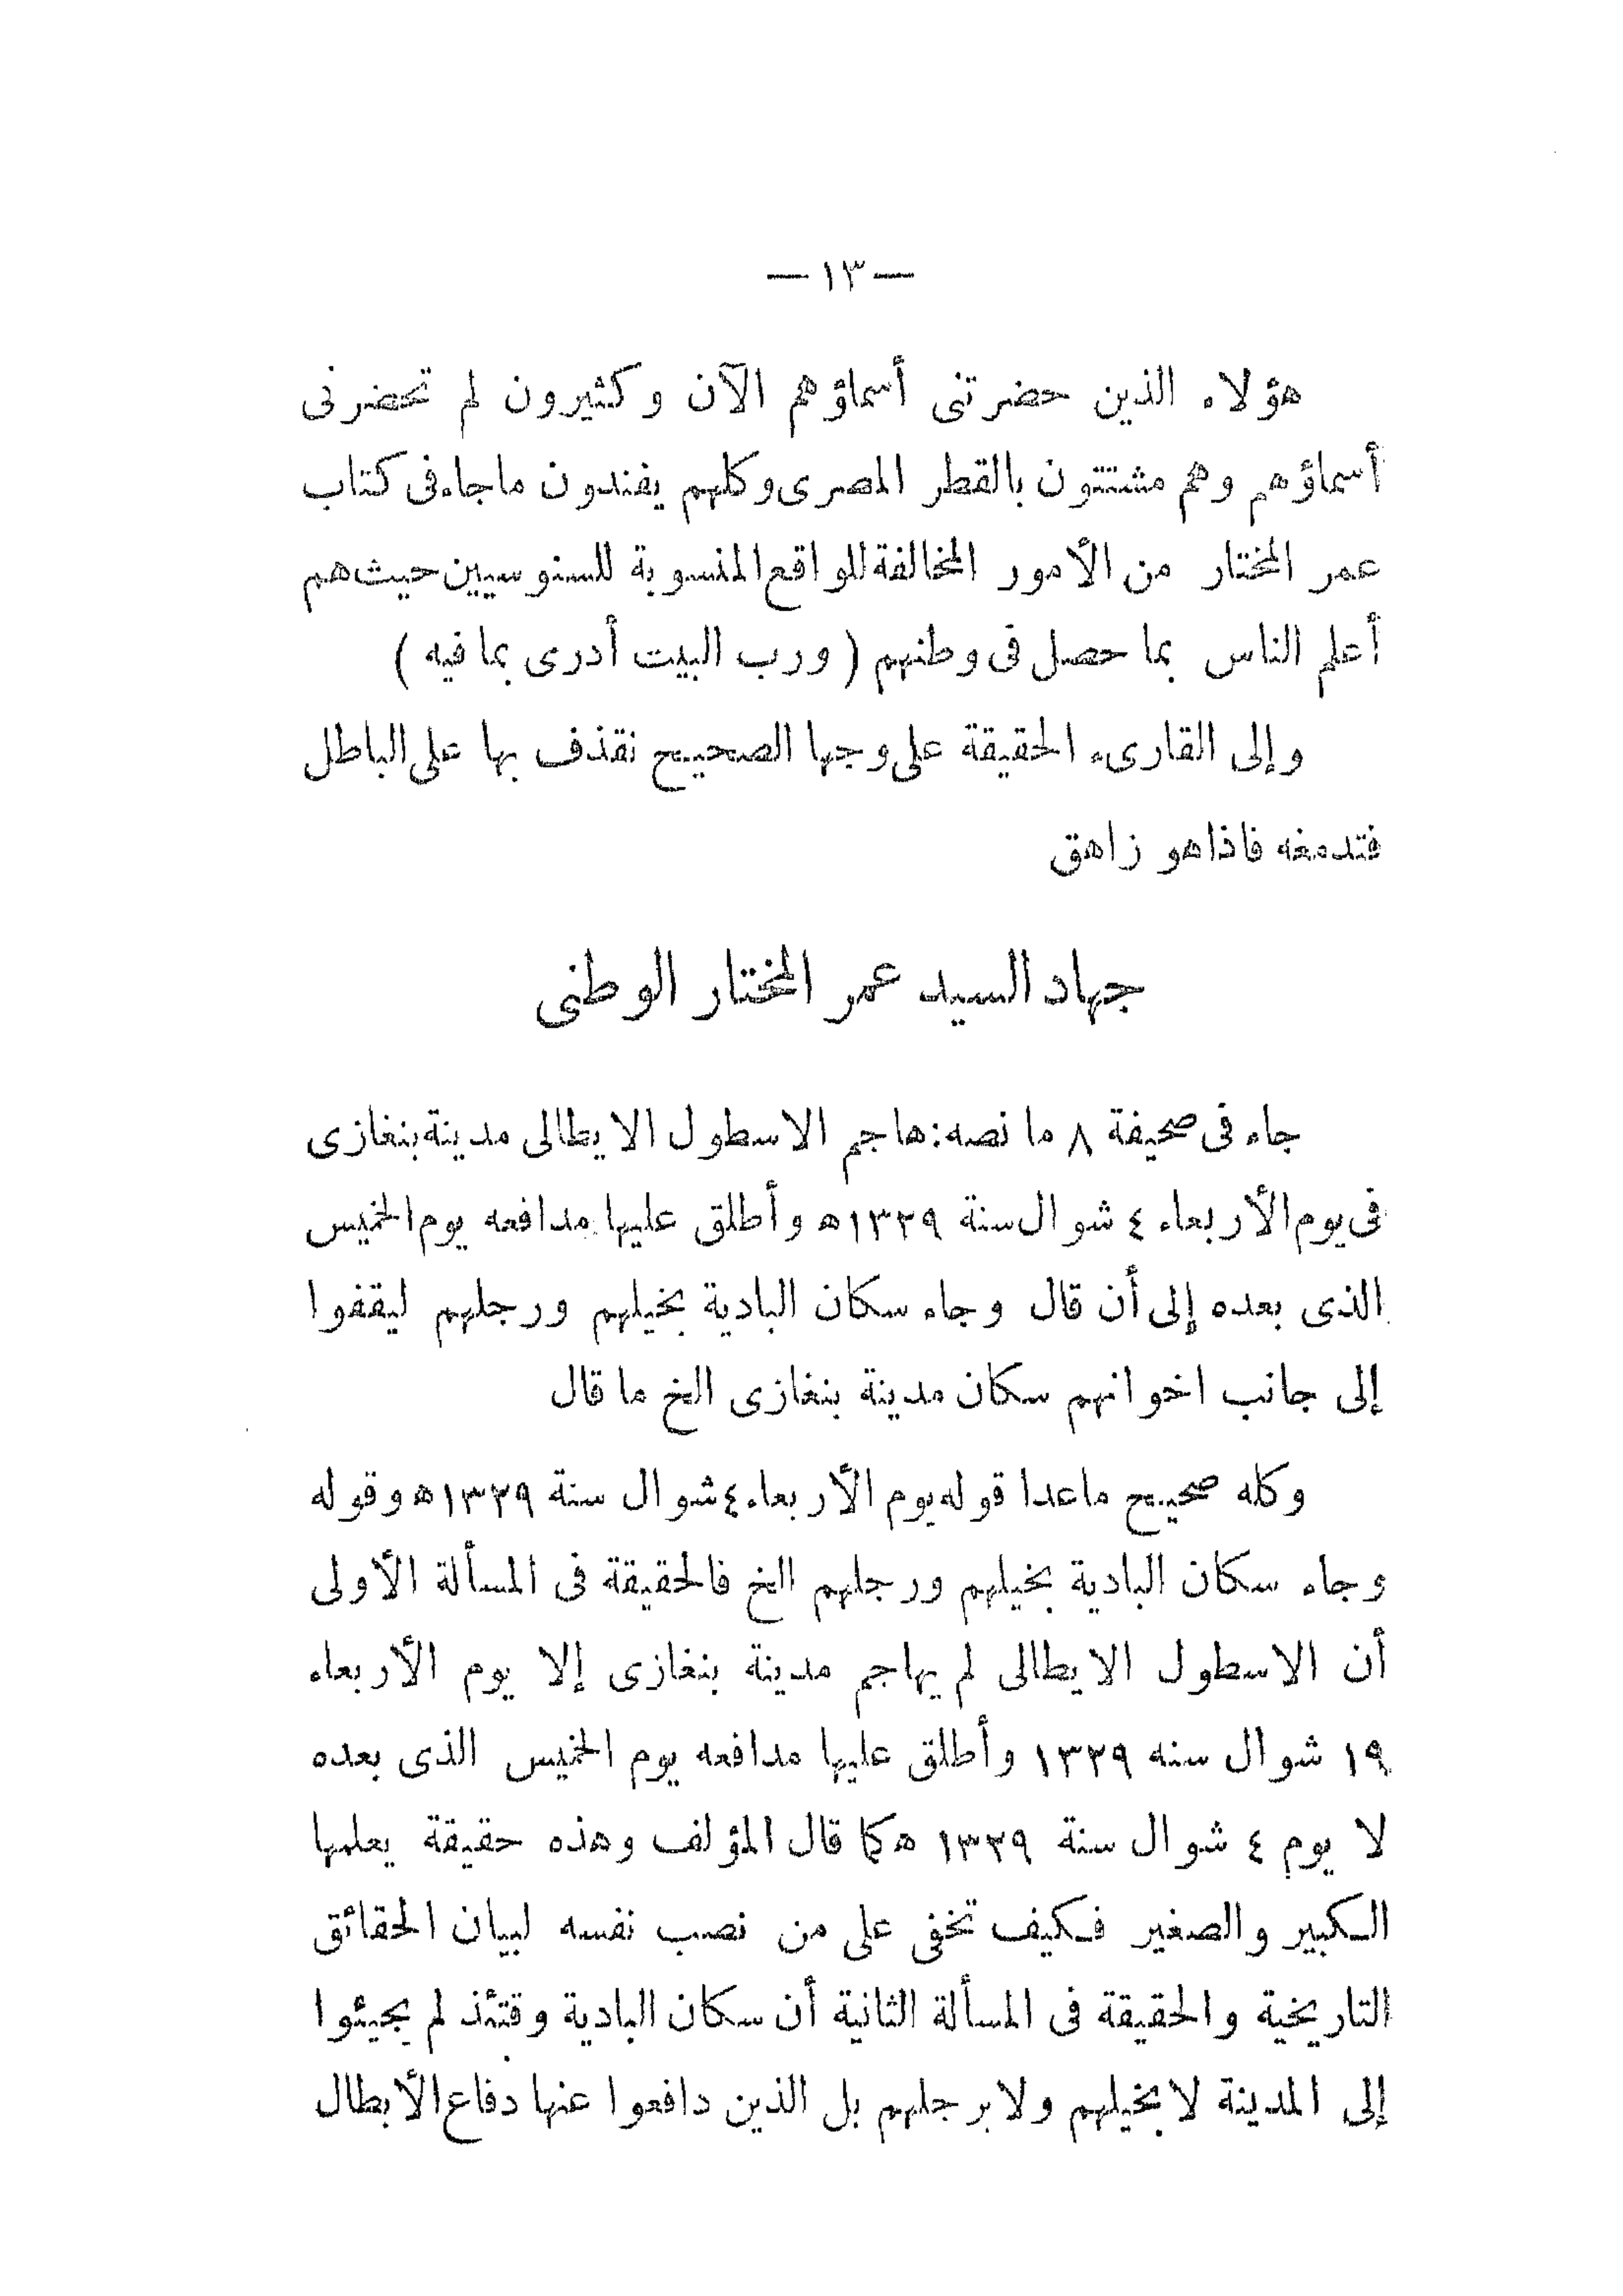 — ١٣ —
هؤلاء الذين حضرتنى أسماؤهم الآن وكثيرون لم تحضرنى
أسماؤهم وهم مشتتون بالقطر المصرى وكلهم يفندون ماجاء فى كتاب
عمر المختار من الأمور المخالفة للواقع المنسوبة للسنوسيين حيث هم
أعلم الناس بما حصل فى وطنهم ( ورب البيت أدرى بما فيه )
وإلى القارىء الحقيقة على وجها الصحيح نقذف بها على الباطل
فتدمغه فاذا هو زاهق
جهاد السيد عمر المختار الوطنى
جاء فى صحيفة ٨ ما نصه: هاجم الاسطول الايطالى مدينة بنغازى
فى يوم الأربعاء ٤ شوال سنة ١٣٢٩ه وأطلق عليها مدافعه يوم الخميس
الذى بعده إلى أن قال وجاء سكان البادية بخيلهم ورجلهم ليقفوا
إلى جانب اخوانهم سكان مدينة بنغازى الخ ما قال
وكله صحيح ماعدا قوله يوم الأربعاء ٤ شوال سنة ١٣٢٩ه وقوله
وجاء سكان البادية بخيلهم ورجلهم الخ فالحقيقة فى المسألة الأولى
أن الاسطول الايطالى لم يهاجم مدينة بنغازى إلا يوم الأربعاء
١٩ شوال سنه ١٣٢٩ وأطلق عليها مدافعه يوم الخميس الذى بعده
لا يوم ٤ شوال سنة ١٣٢٩ ه كما قال المؤلف وهذه حقيقة يعلمها
الكبير والصغير فكيف تخفى على من نصب نفسه لبيان الحقائق
التاريخية والحقيقة فى المسألة الثانية أن سكان البادية وقتئذ لم يجيئوا
إلى المدينة لا بخيلهم ولا برجلهم بل الذين دافعوا عنها دفاع الأبطال